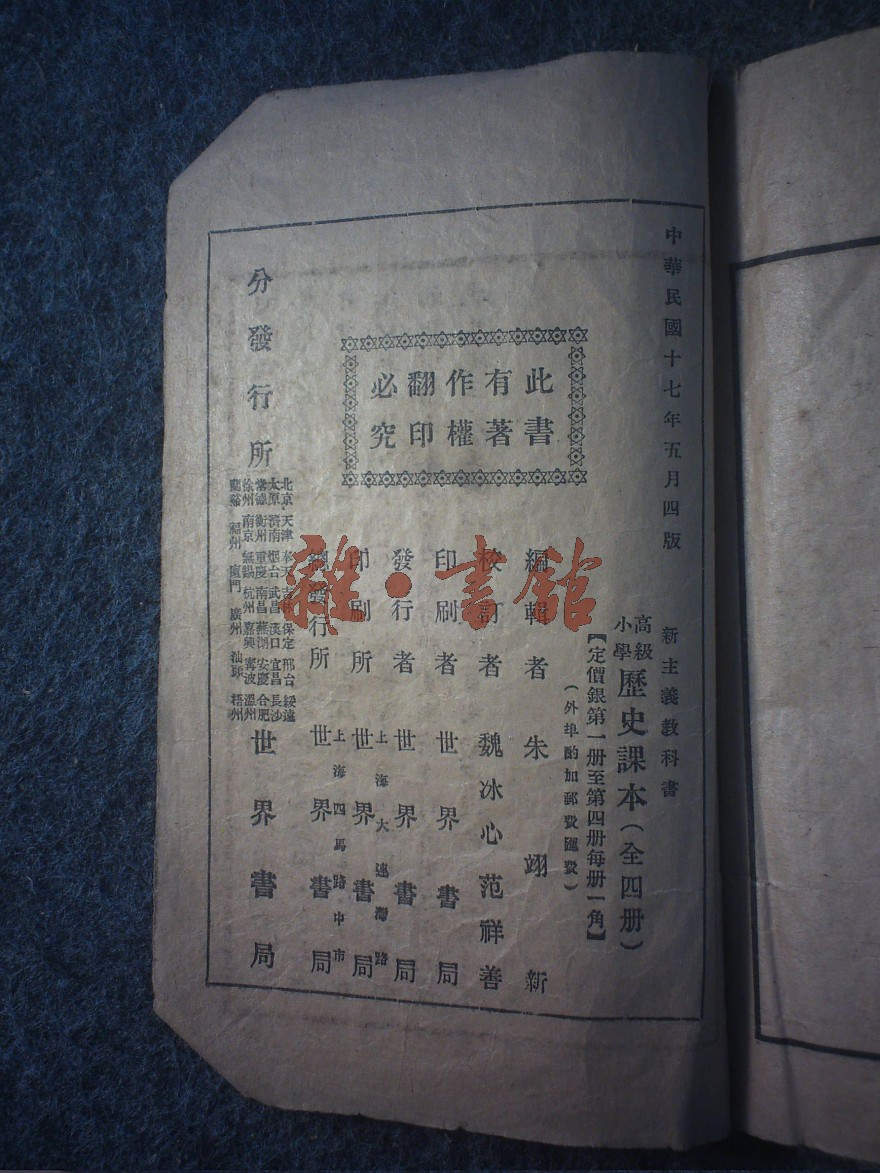 中華民國十七年五月四版
新主義教科書
高級小學歷史課本（全四册）
【定價銀第一册至第四册每册一角】
（外埠酌加郵費匯費）
此書
有著
作權
翻印
必究
編輯者 朱翊新
校訂者 魏冰心范祥善
印刷者 世界書局
發行者 世界書局
印刷所 上海大連灣路 世界書局
總發行所 上海四馬路中市 世界書局
分發行所
北京 天津 奉天 吉林 保定 邢台 綏遠
太原 濟南 烟台 武昌 漢口 宜昌 長沙
常德 衡州 重慶 南昌 蕪湖 安慶 合肥
徐州 南京 無錫 杭州 嘉興 寗波 溫州
蘭谿 福州 廈門 廣州 汕頭 梧州
世界書局
雜·書館